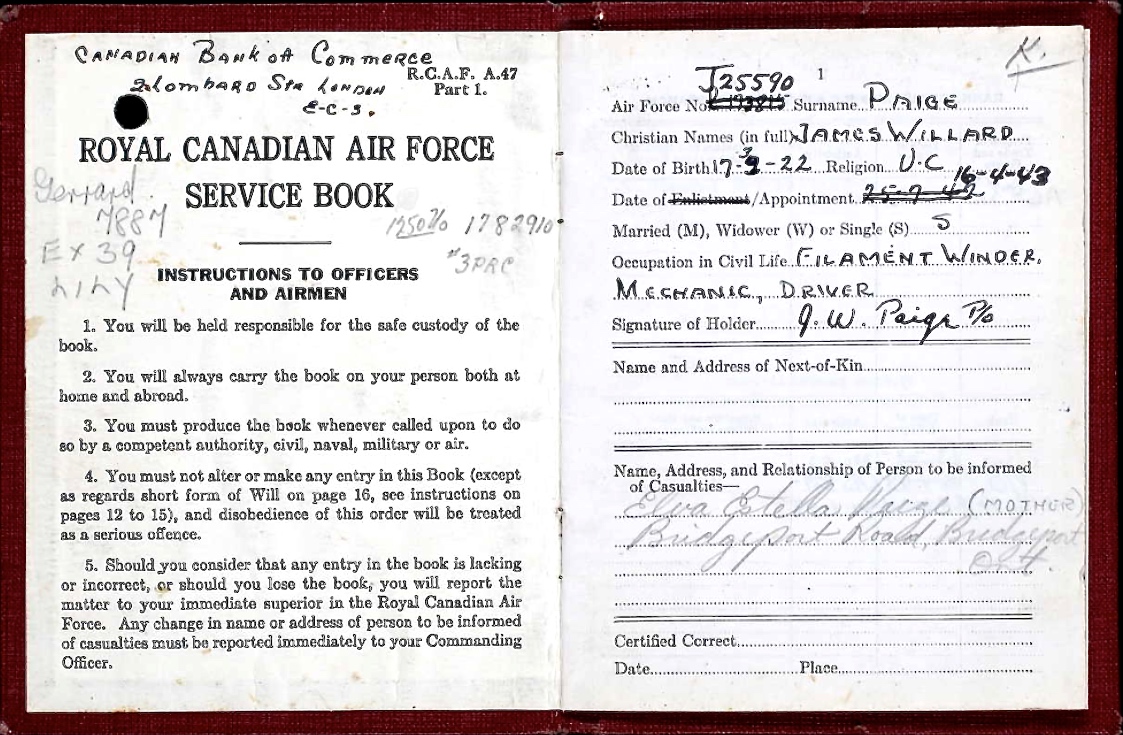 CANADIAN BANK OF COMMERCE
2 LOMBARD STR LONDON
E-C-3.
R.C.A.F. A.47
Part 1.
ROYAL CANADIAN AIR FORCE
SERVICE BOOK
Gerrard
7887
Ex 39
LILY
1782910
#3PRC
INSTRUCTIONS TO OFFICERS
AND AIRMEN
1. You will be held responsible for the safe custody of the
book.
2. You will always carry the book on your person both at
home and abroad.
3. You must produce the book whenever called upon to do
so by a competent authority, civil, naval, military or air.
4. You must not alter or make any entry in this Book (except
as regards short form of Will on page 16, see instructions on
pages 12 to 15), and disobedience of this order will be treated
as a serious offence.
5. Should you consider that any entry in the book is lacking
or incorrect, or should you lose the book, you will report the
matter to your immediate superior in the Royal Canadian Air
Force. Any change in name or address of person to be informed
of casualties must be reported immediately to your Commanding
Officer.
K.
1
J25590
Air Force No. Surname PAIGE
Christian Names (in full) JAMES WILLARD
Date of Birth 17- -22 Religion U.C
16-4-43
Date of Enlistment/Appointment 25-9-42
Married (M), Widower (W) or Single (S) S
Occupation in Civil Life FILAMENT WINDER,
MECHANIC, DRIVER
Signature of Holder J. W. Paige P/O
Name and Address of Next-of-Kin
Name, Address, and Relationship of Person to be informed
of Casualties—
Elva Estella Paige (MOTHER)
Bridgeport Road, Bridgeport
Ont.
Certified Correct
Date Place